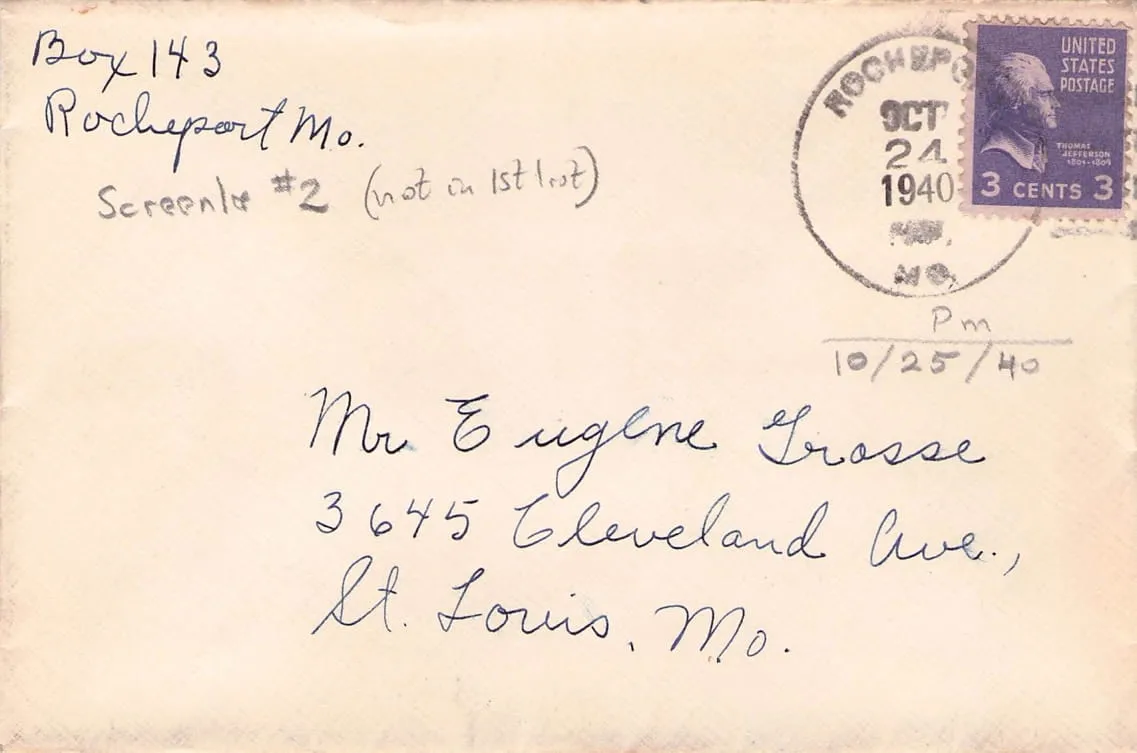 Box 143
Rocheport Mo.
#2 (not in 1st lot)
ROCHEPO
OCT
24
1940
MO.
UNITED
STATES
POSTAGE
THOMAS
JEFFERSON
1801-1809
3 CENTS 3
Pm
10/25/40
Mr Eugene Grosse
3645 Cleveland Ave.,
St. Louis, Mo.